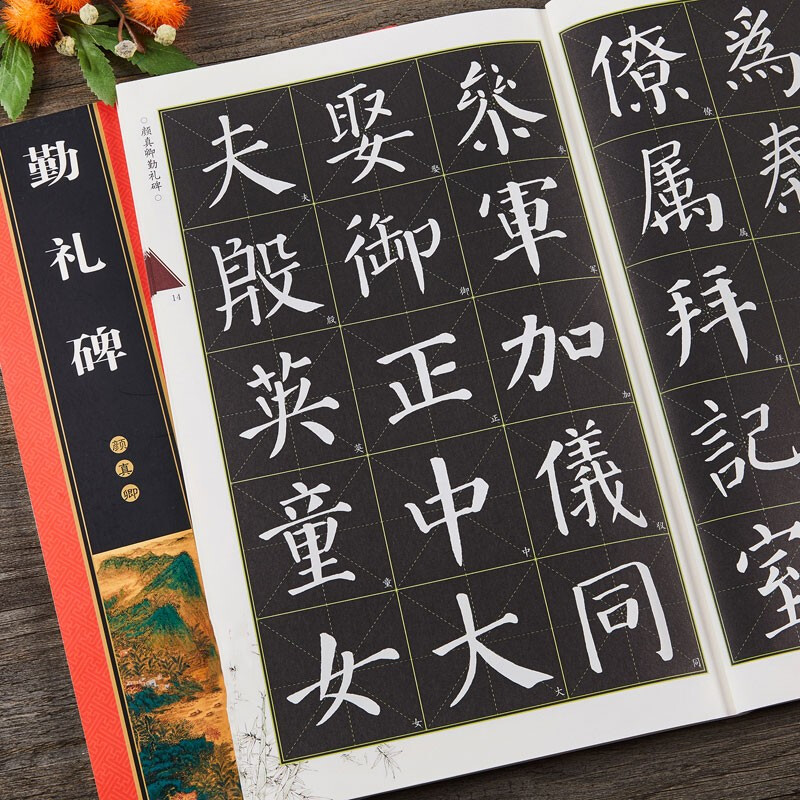 勤礼碑
颜真卿
○颜真卿勤礼碑○
14
爲秦
僚属拜記室
僚属拜
參軍加儀同
参军加仪同
娶御正中大
娶御正中大
夫殷英童女
夫殷英童女